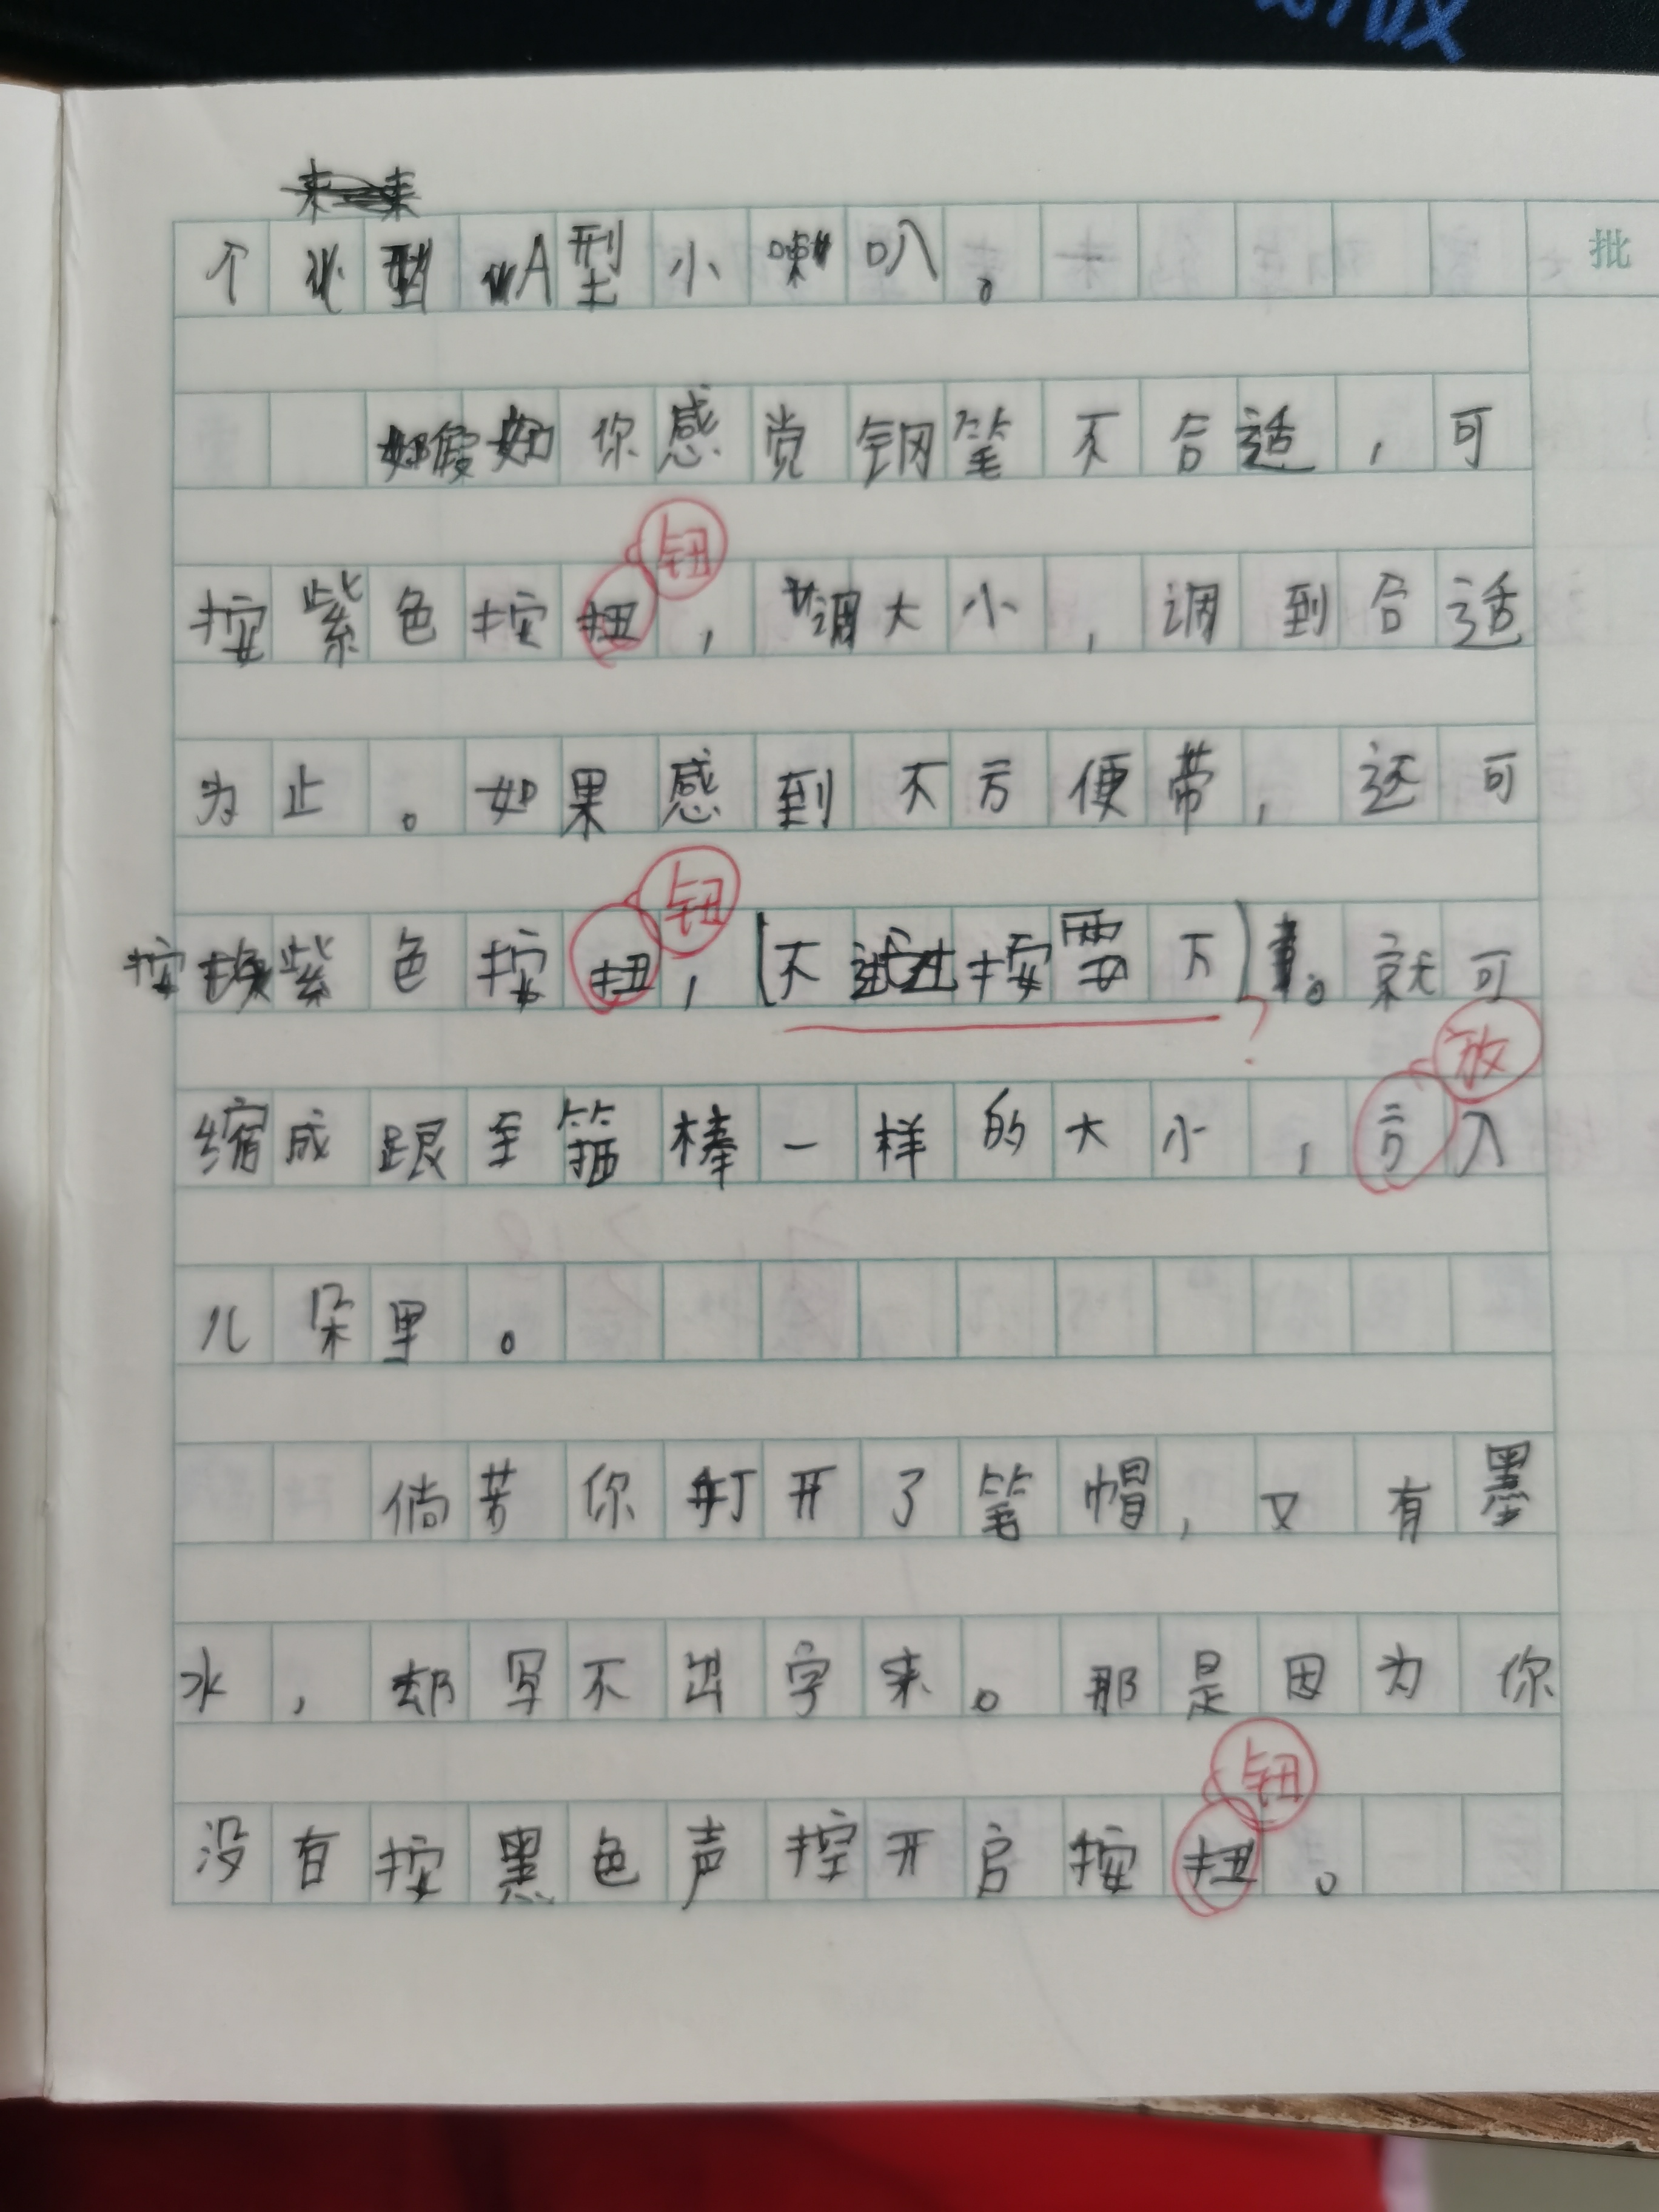 个 A型小喇叭。
批
假如你感觉钢笔不合适,可
钮
按紫色按扭,调大小,调到合适
为止。如果感到不方便带,还可
钮
按紫色按扭,(不试过按要下)。就可
?
放
缩成跟至箍棒一样的大小,方入
儿朵里。
倘若你打开了笔帽,又有墨
水,却写不出字来。那是因为你
钮
没有按黑色声控开启按扭。